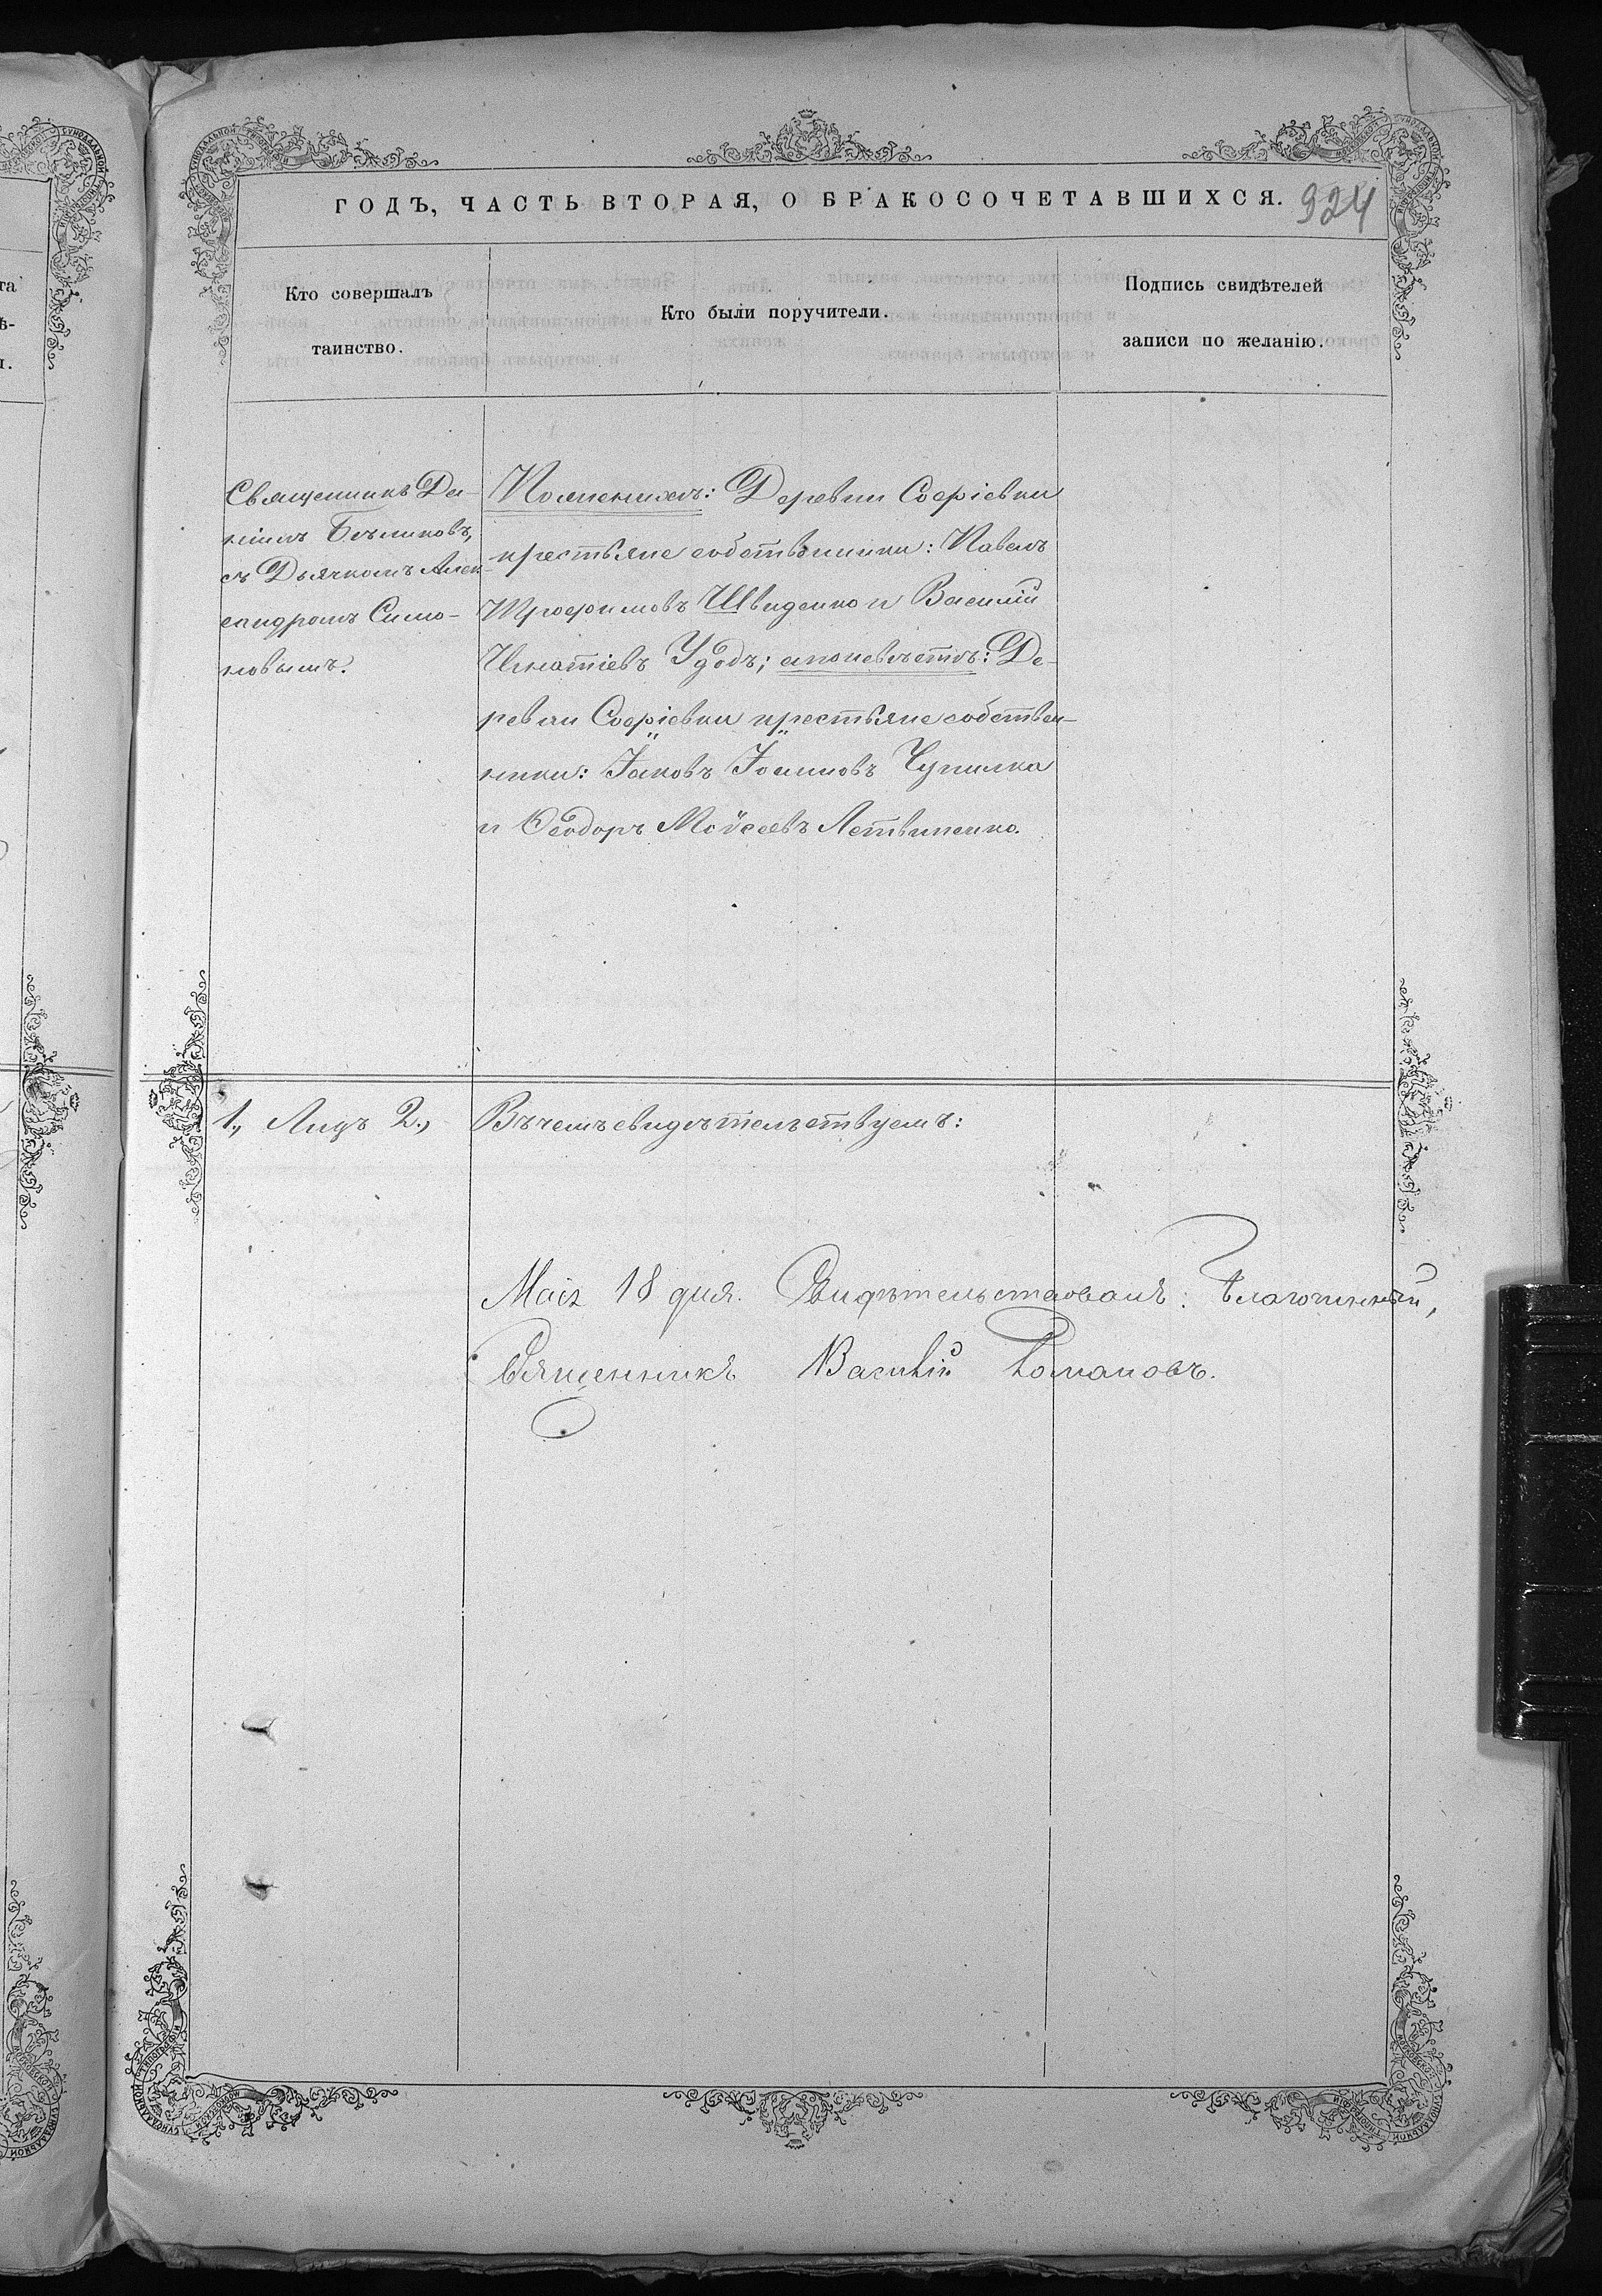 ГОДЪ, ЧАСТЬ ВТОРАЯ, О БРАКОСОЧЕТАВШИХСЯ. 924
Кто совершалъ
таинство.
Кто были поручители.
Подпись свидѣтелей
записи по желанію.
Священникъ Да-
ніилъ Бѣликовъ,
съ Дьячкомъ Алек-
сандромъ Симо-
новымъ.
По женихѣ: Деревни Софіевки
крестьяне собственники: Павелъ
Трофимовъ Швиденко и Василій
Игнатіевъ Удодъ; а по невѣстѣ: Де-
ревни Софіевки крестьяне собствен-
ники: Іаковъ Іоанновъ Чупилка
и Ѳеодоръ Моѵсеевъ Летвиненко.
1., Лицъ 2., Въ чемъ свидѣтельствуемъ:
Маія 18 дня. Свидѣтельствовалъ: Благочинный,
Священникъ Василій Романовъ.